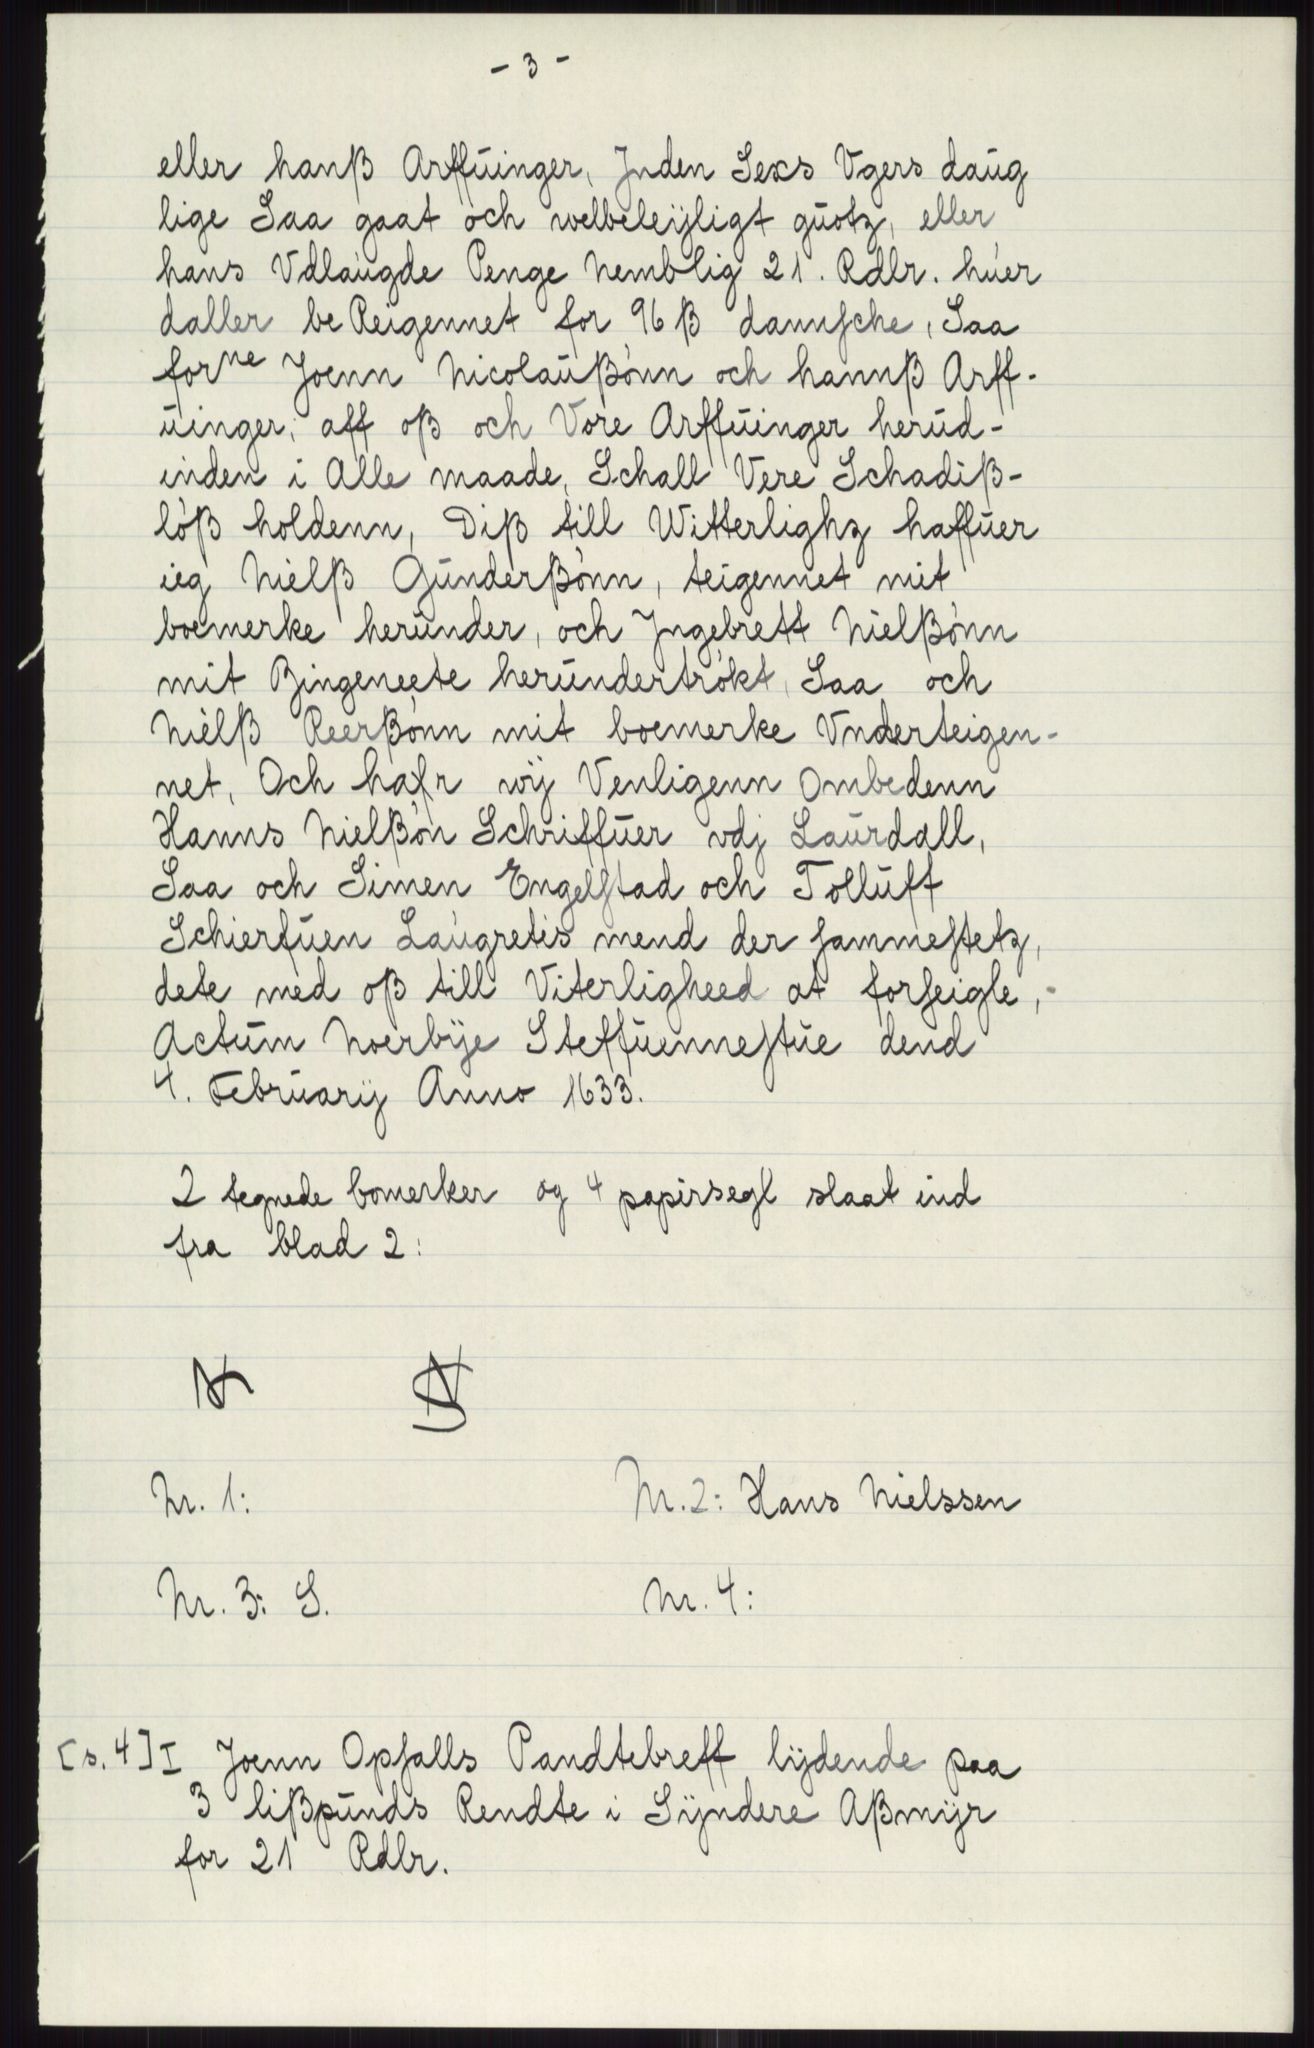 - 3 -
eller hanß Arffůinger, Jnden Sexs Vgers daůg
lige Saa gaat och welbeleÿligt gůotz, eller
hans Vdlaůgde Penge Nemblig 21. Rdlr. hůer
daller beReigennet for 96 ß dannsche, Saa
forne Joenn Nicolaůßònn och hannß Arff-
ůinger, aff oß och Vore Arffůinger herůd-
inden i Alle maade, Schall Vere Schadiß-
lòß holdenn, Diß till Witterlighz haffůer
ieg Nielß Gůnderßònn, teigennet mit
boemerke herůnder, och Jngebrett Nielßònn
mit Zingeneete herůndertròkt, Saa och
Nielß Reerßònn mit boemerke Vnderteigen-
net, Och hafr wÿ Venligenn Ombedenn
Hanns Nielßòn Schriffůer vdj Laůrdall,
Saa och Simen Engelstad och Tollůff
Schierfůen Laůgretis mend der sammestetz,
dete med oß till Viterligheed at forseigle,-
Actům Noerbÿe Steffůennestůe dend
4. Febrůarÿ Anno 1633.
2 tegnede bomerker og 4 papirsegl slaat ind
fra blad 2:
Nr. 1:
Nr. 2: Hans Nielssen
Nr. 3: S.
Nr. 4:
[s. 4] I Joenn Opsalls Pandtebreff lÿdende paa
3 lißpůnds Rendte i Sÿndere Aßmÿr
for 21 Rdlr.